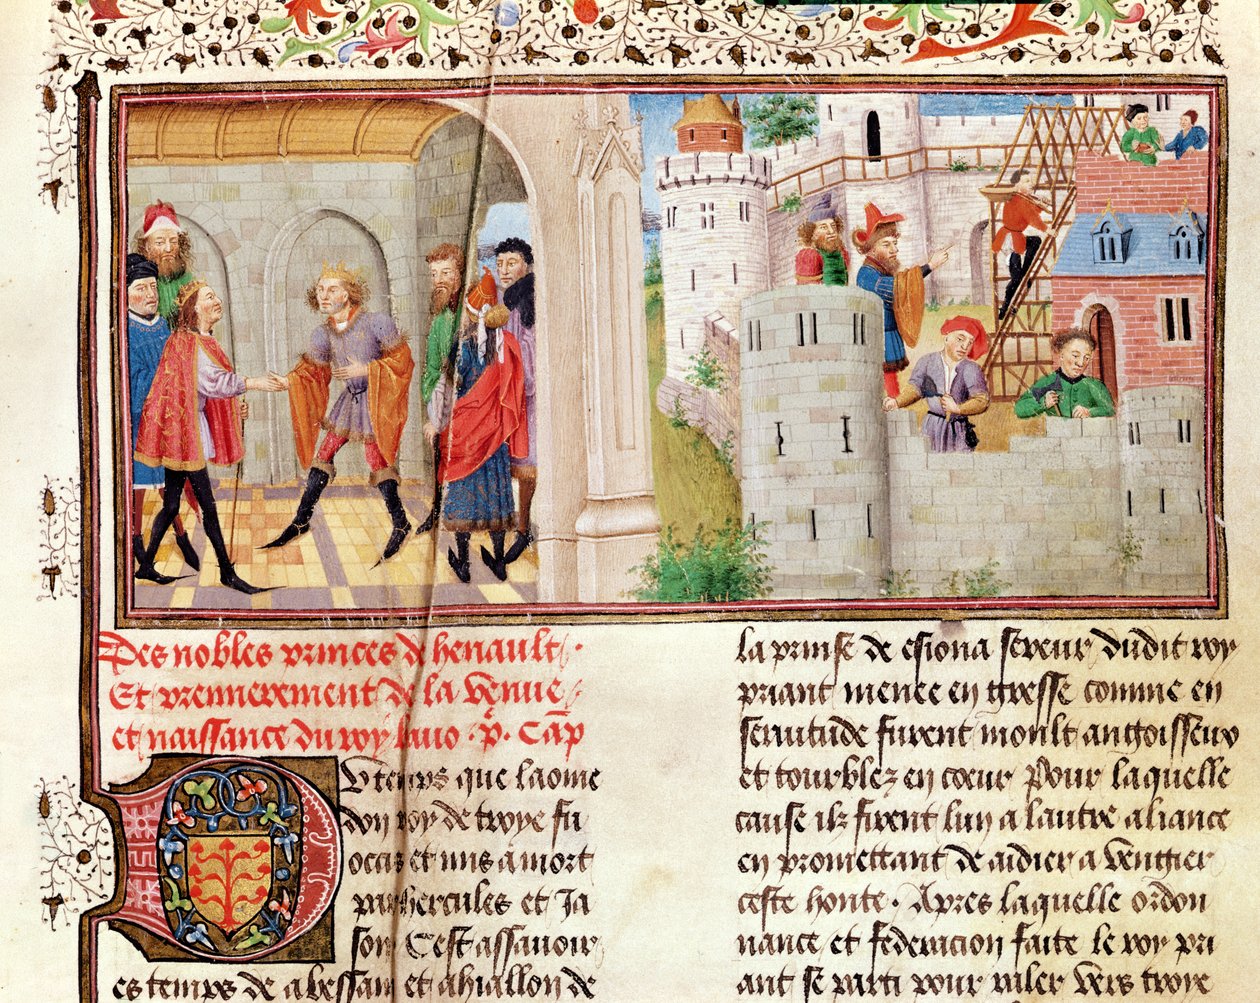 Des nobles princes de henault.
Et premierement de la venue
et naissance du roy bauo. p. Cap
Du temps que laome
don roy de troye fu
occis et mis a mort
par hercules et Ja
son Cest assauoir
es temps de abessan et ahiallon de
la prinse de esiona seveur dudit roy
priant menee en gresse comme en
seruitude furent moult angoisseux
et tourblez en coeur Pour laquelle
cause ilz firent lun a lautre aliance
en promettant de aidier a vengier
ceste honte. Apres laquelle ordon
nance et federacion faite le roy pri
ant se parti pour raler vers troye